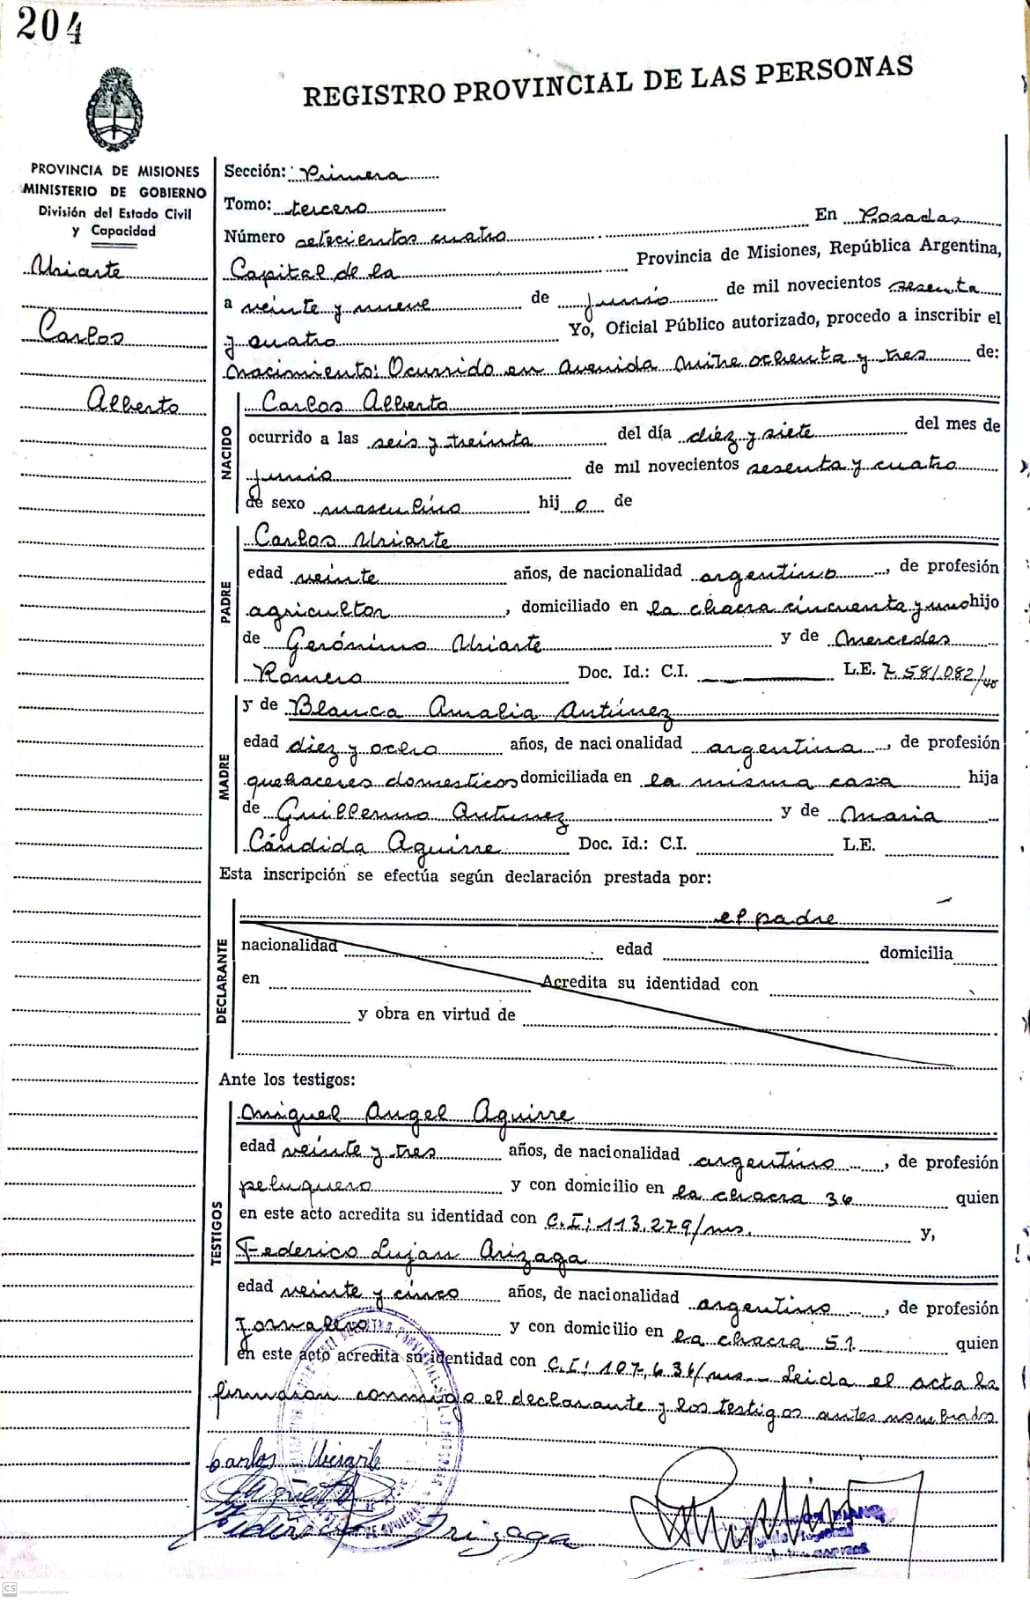 204
REGISTRO PROVINCIAL DE LAS PERSONAS
PROVINCIA DE MISIONES
MINISTERIO DE GOBIERNO
División del Estado Civil
y Capacidad
Uriarte
Carlos
Alberto
Sección: Primera
Tomo: tercero
Número setecientos cuatro En Posadas
Capital de la Provincia de Misiones, República Argentina,
a veinte y nueve de junio de mil novecientos sesenta
y cuatro Yo, Oficial Público autorizado, procedo a inscribir el
nacimiento: Ocurrido en Avenida Mitre ochenta y tres de:
NACIDO
Carlos Alberto
ocurrido a las seis y treinta del día diez y siete del mes de
junio de mil novecientos sesenta y cuatro
de sexo masculino hij o de
PADRE
Carlos Uriarte
edad veinte años, de nacionalidad argentino, de profesión
agricultor, domiciliado en la chacra cincuenta y uno hijo
de Gerónimo Uriarte y de Mercedes
Romero Doc. Id.: C.I. L.E. 7.581.082/
MADRE
y de Blanca Amalia Antúnez
edad diez y ocho años, de nacionalidad argentina, de profesión
quehaceres domesticos domiciliada en la misma casa hija
de Guillermo Antunez y de Maria
Cándida Aguirre Doc. Id.: C.I. L.E.
Esta inscripción se efectúa según declaración prestada por:
DECLARANTE
el padre
nacionalidad edad domicilia
en Acredita su identidad con
y obra en virtud de
Ante los testigos:
TESTIGOS
Miguel Angel Aguirre
edad veinte y tres años, de nacionalidad argentino, de profesión
peluquero y con domicilio en la chacra 36 quien
en este acto acredita su identidad con C.I: 113.279/ms. y,
Federico Lujan Arizaga
edad veinte y cinco años, de nacionalidad argentino, de profesión
Jornalero y con domicilio en la chacra 51 quien
en este acto acredita su identidad con C.I: 107.636/ms. Leida el acta la
firmaron conmigo el declarante y los testigos antes nombrados
Carlos Uriarte
Arizaga
CS